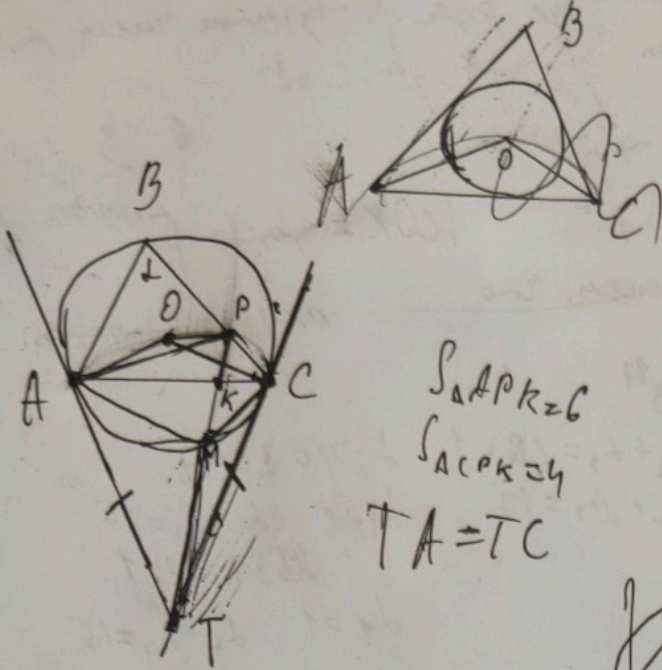 B
O
A
C
B
α
O
P
A
K
C
M
T
S△APK=6
S△CPK=4
TA=TC